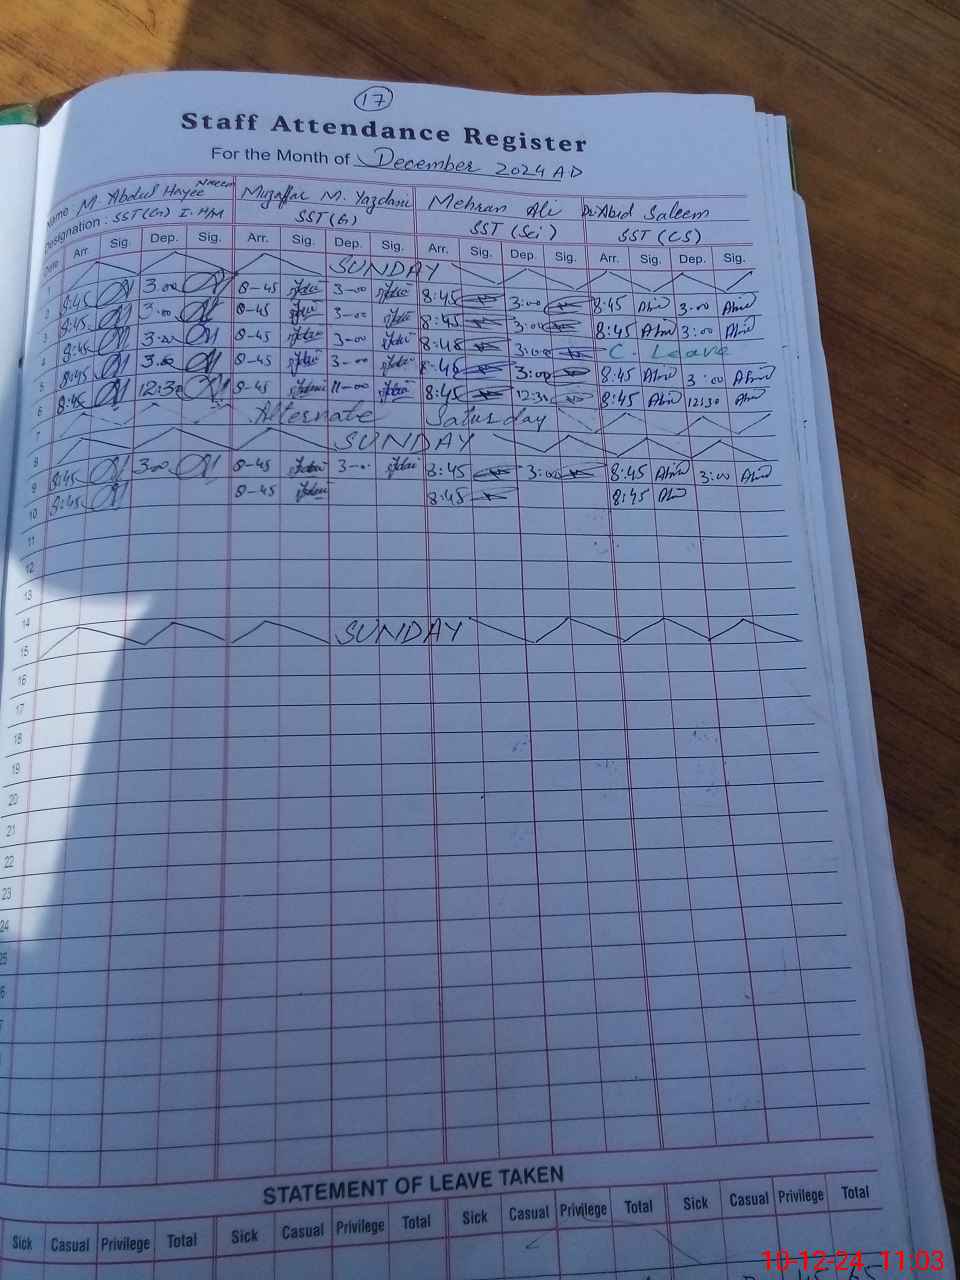 17
Staff Attendance Register
For the Month of December 2024 AD
Name M. Abdul Hayee Naeem Muzaffar M. Yazdani Mehran Ali Dr. Abid Saleem
Designation: SST(G) I. H/M SST(G) SST (Sci) SST (CS)
Date Arr. Sig. Dep. Sig. Arr. Sig. Dep. Sig. Arr. Sig. Dep. Sig. Arr. Sig. Dep. Sig.
1 SUNDAY
2 8:45 3.00 8-45 3-00 8:45 3:00 8:45 3:00
3 8:45 3.00 8-45 3-00 8:45 3:00 8:45 3:00
4 8:45 3.00 8-45 3-00 8:45 3:00 C. Leave
5 8:45 3.00 8-45 3-00 8:45 3:00 8:45 3:00
6 8:45 12:30 8-45 11-00 8:45 12:30 8:45 12:30
7 Alternate Saturday
8 SUNDAY
9 8:45 3.00 8-45 3-00 8:45 3:00 8:45 3:00
10 8:45 8-45 8:45 8:45
11
12
13
14
15 SUNDAY
16
17
18
19
20
21
22
23
24
25
6
STATEMENT OF LEAVE TAKEN
Sick Casual Privilege Total Sick Casual Privilege Total Sick Casual Privilege Total Sick Casual Privilege Total
10-12-24 11:03